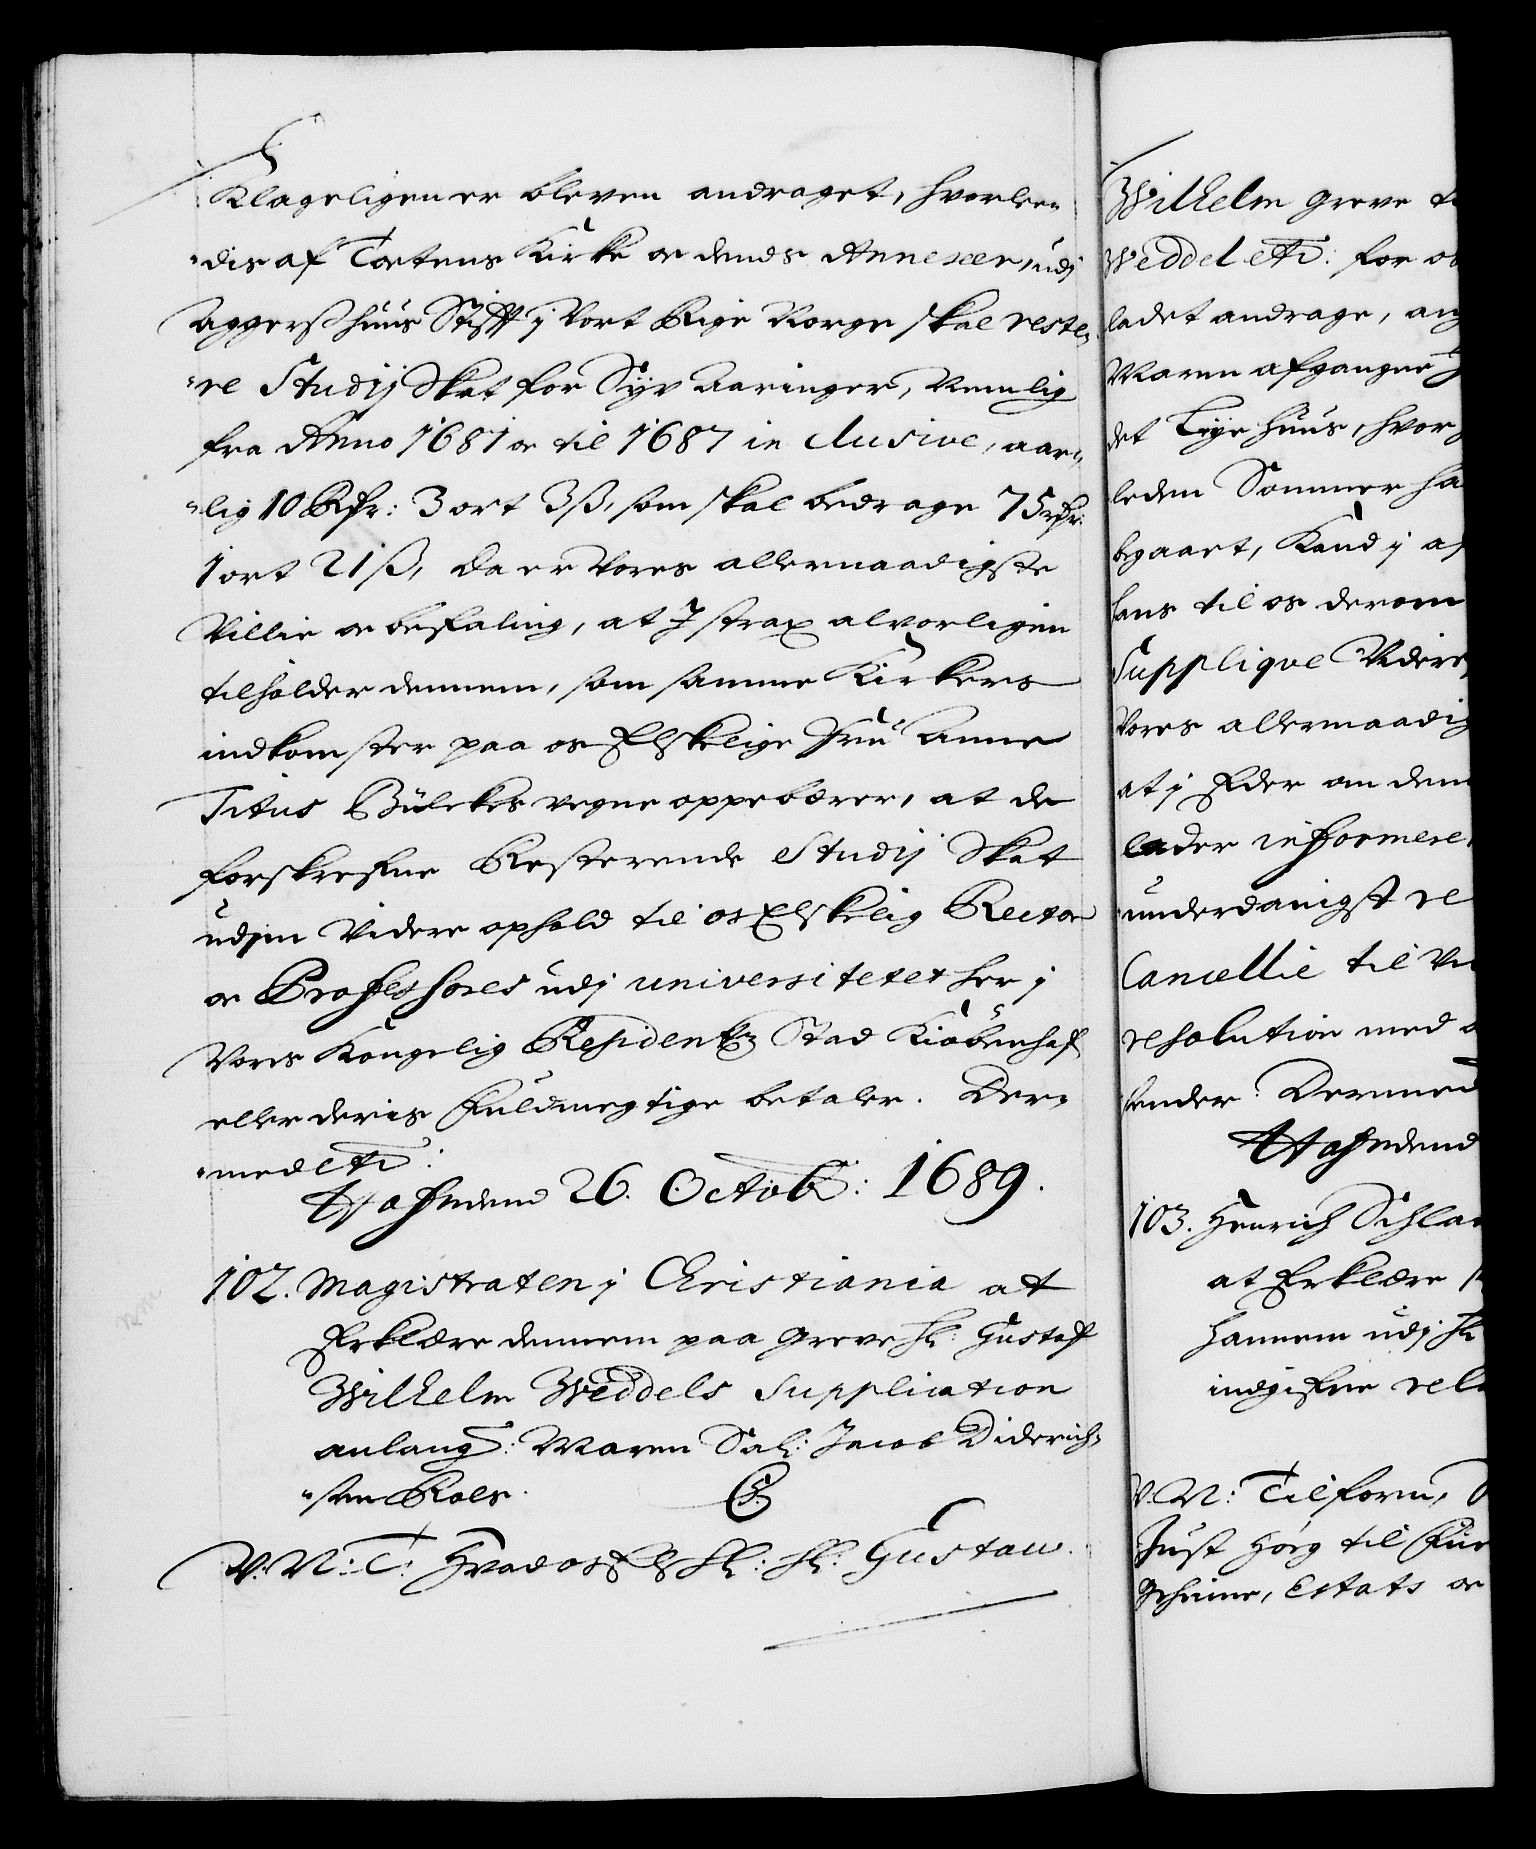 Klageligen er bleven andraget, hvorlee-
-dis af Totens Kirke oc dends Annexer, udj
Aggershuus Stifft j Vort Rige Norge skal reste-
-re Studij Skat for Syv Aaringer, Nemlig
fra Anno 1681 oc til 1687 inclusive, aar-
-lig 10 Rdr: 3 ort 3 ß, som skal bedrage 75 rdr:
1 ort 21 ß, Da er Vores allernaadigste
Villie oc befaling, at I strax alvorligen
tilholder dennem, som samme Kirkers
indkomster paa os Elskelige Fru Anne
Titus Bülckes vegne oppebærer, at de
forskrefne Resterende Studij Skat
uden Videre ophold til os Elskelig Rector
oc Professores udj universitetet her j
Vores Kongelig Residentz Stad Kiøbenhafn
eller deris Fuldmegtige betaler. Der-
-med etc:
Hafn den 26. Octob: 1689.
102. Magistraten j Christiania at
Erklære dennem paa Greve Hr: Gustaff
Wilhelm Weddels Supplication
anlang: Maren Sal: Jacob Diderich-
-sen Roes.
V. N: T: Hvad os Elsk: Hr: Gustaw
Wilhelm Greve t
Weddel etc: for os
ladet andrage, ang
Maren afgangne J
det Leye huus, hvor
leden Sommer ha
begaaet, Kand j af
hans til os derom
Supplique Videre
Vores allernaadig
at j Eder om dem
lader informere,
underdanigst re
Cancellie til Vi
resolution med
sender. Dermed
Hafn den d
103. Henrich Schla
at Erklære
hannem udj Hr
indgifne rel
V. N: Tilforn,
Just Høg til Fu
Geheime, Estats oc